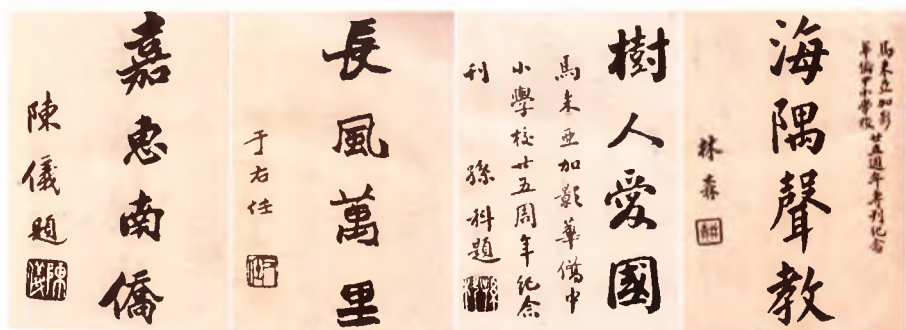 馬来亞加影
華僑中小學校
廿五週年專刊紀念
海隅聲教
林森
樹人愛國
馬来亞加影華僑中
小學校廿五周年紀念
刊 孫科題
長風萬里
于右任
嘉惠南僑
陳儀題
陳儀